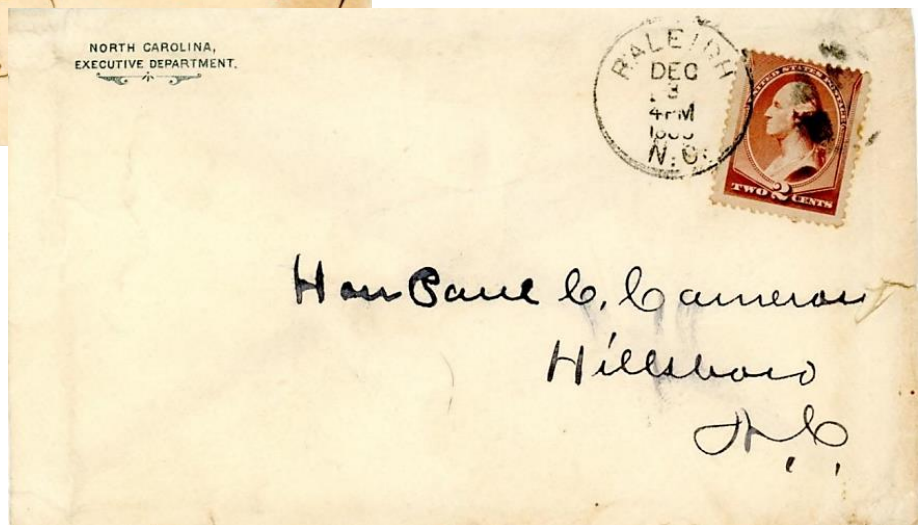 NORTH CAROLINA,
EXECUTIVE DEPARTMENT.
RALEIGH
DEC
3
4PM
N.C.
UNITED STATES POSTAGE
TWO 2 CENTS
Hon Paul C. Cameron
Hillsboro
N.C.